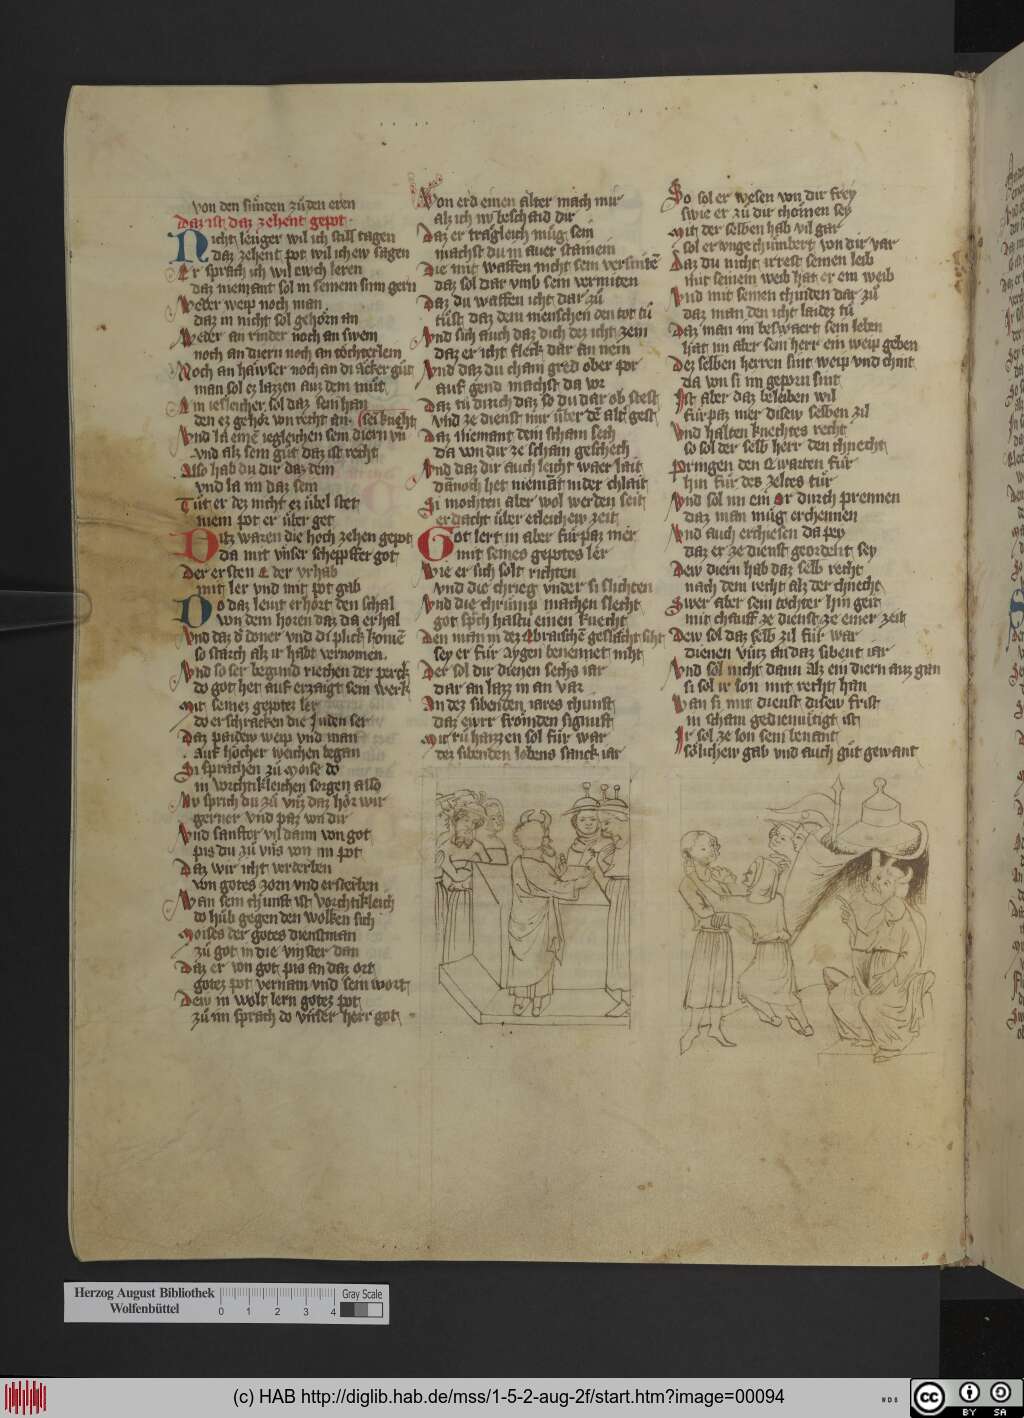 von den sunden zu den eren
Daz ist daz zehent gepot
Nicht lenger wil ich still tagen
daz zehent pot wil ich ew sagen
Er sprach ich wil ewch leren
daz niemant sol in seinem sinn gern
Weder weip noch man
daz in nicht sol gehorn an
Weder an rinder noch an swein
noch an diern noch an töchterlein
Noch an häwser noch an di äcker gut
man sol ez lazzen auz dem mut
Aim iesleicher sol daz sein han
den ez gehör von recht an (sei knecht
Vnd la eine iegleichen sein diern vn
vnd alz sein gut daz ist recht
Also hab du dir daz dein
vnd la im daz sein
Tut er dez nicht ez übel stet
wem pot er über get
Ditz waren die hoch zehen gepot
da mit vnser scheppffer got
Der ersten e der vrhab
mit ler vnd mit pot gab
Do daz lewt erhort den schal
von dem horen daz da erhal
Vnd daz e doner vnd di plick kome
so starch alz ir habt vernomen
Vnd so ser begund riechen der perck
do got her auf erzaigt sein werk
Mit seinez gepotez ler
do erschracken die Juden ser
Daz paidew weip vnd man
auf höcher weichen began
Si sprachen zu Moise do
in vorchtikleichen sorgen also
Nv sprich du zu vns daz hör wir
gerner vnd paz von dir
Vnd sanfter vil dann von got
pis du zu vns von im pot
Daz wir icht verderben
von gotes zorn vnd ersterben
Wan sein chunst ist vorchtikleich
do hub gegen den wolken sich
Moises der gotes dienstman
zu got in die vinster dan
Daz er von got pis an daz ort
gotez pot vernam vnd sein wort
Dew in wolt lern gotez pot
zu im sprach do vnser herr got
Von erd einen alter mach mir
alz ich nv beschaid dir
Daz er tragleich mug sein
machst du in auer stainein
Die mit waffen nicht sein versnite
daz sol dar vmb sein vermiten
Daz du waffen icht dar zu
tust daz dem menschen den tot tu
Vnd sich auch daz dich dez icht zem
daz er icht fleck dar an nem
Vnd daz du chain gred ober por
auf gend machst da vor
Daz tu durch daz so du dar ob stest
vnd ze dienst mir über de alt gest
Daz niemant dein scham sech
da von dir ze scham geschech
Vnd daz dir auch leicht waer lait
dannoch het niemat nider chlait
Si mochten aber wol werden seit
erdacht über etleichew zeit
Got lert in aber fürpaz mer
mit seines gepotes ler
Wie er sich solt richten
vnd die chrieg vnder si slichten
Vnd die chrump machen slecht
got spch hastu einen knecht
Den man in dez Abrahische geslächt siht
sey er für aygen benennet niht
Der sol dir dienen sechs iar
dar an lazz in an var
An dez sibenden iares chunst
daz ewrr fromden sigmist
Mit tu hazzen sol für war
dez sibenden lobens sanck iar
So sol er wesen von dir frey
swie er zu dir chomen sey
Mit der selben hab vil gar
sol er vngechumbert von dir var
Daz du nicht irrest seinen leib
mit seinem weib hat er ein weib
Vnd mit seinen chinden dar zu
daz man den icht laidez tu
Daz man im beswaert sein leben
hat im aber sein herr ein weip geben
Dez selben herren sint weip vnd chint
da von si im geporn sint
Ist aber daz beleiben wil
fürpaz mer disew selben zil
Vnd halten knechtes recht
so sol der selb herr den chnecht
Pringen den Ewarten für
hin für des zeltes tür
Vnd sol im ein or durch prennen
daz man müg erchennen
Vnd auch erchiesen da pey
daz er ze dienst geordent sey
Dew diern hab daz selb recht
nach dem recht alz der chnecht
Swer aber sein tochter hin geit
mit chauff ze dienst ze einer zeit
Dew sol daz selb zil für war
dienen vntz an daz sibent iar
Vnd sol nicht dann alz ein diern auz gan
si sol ir lon mit recht han
Wan si mit dienst disew frist
in scham gediemutigt ist
Ir sol ze lon sein benant
solichew gab vnd auch gut gewant
Herzog August Bibliothek
Wolfenbüttel
0 1 2 3 4
Gray Scale
(c) HAB http://diglib.hab.de/mss/1-5-2-aug-2f/start.htm?image=00094
cc BY SA